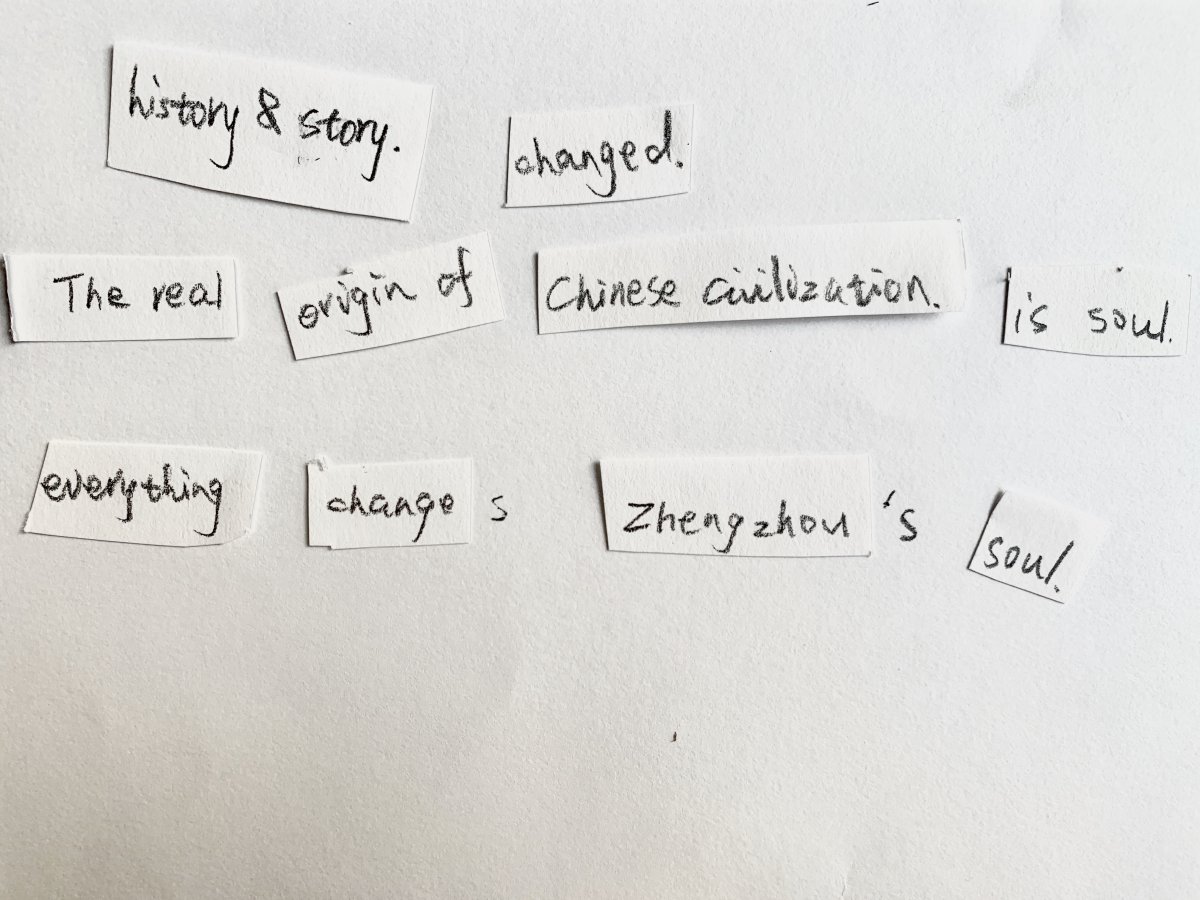 history & story. changed.
The real origin of Chinese civilization. is soul.
everything changes Zhengzhou's soul.